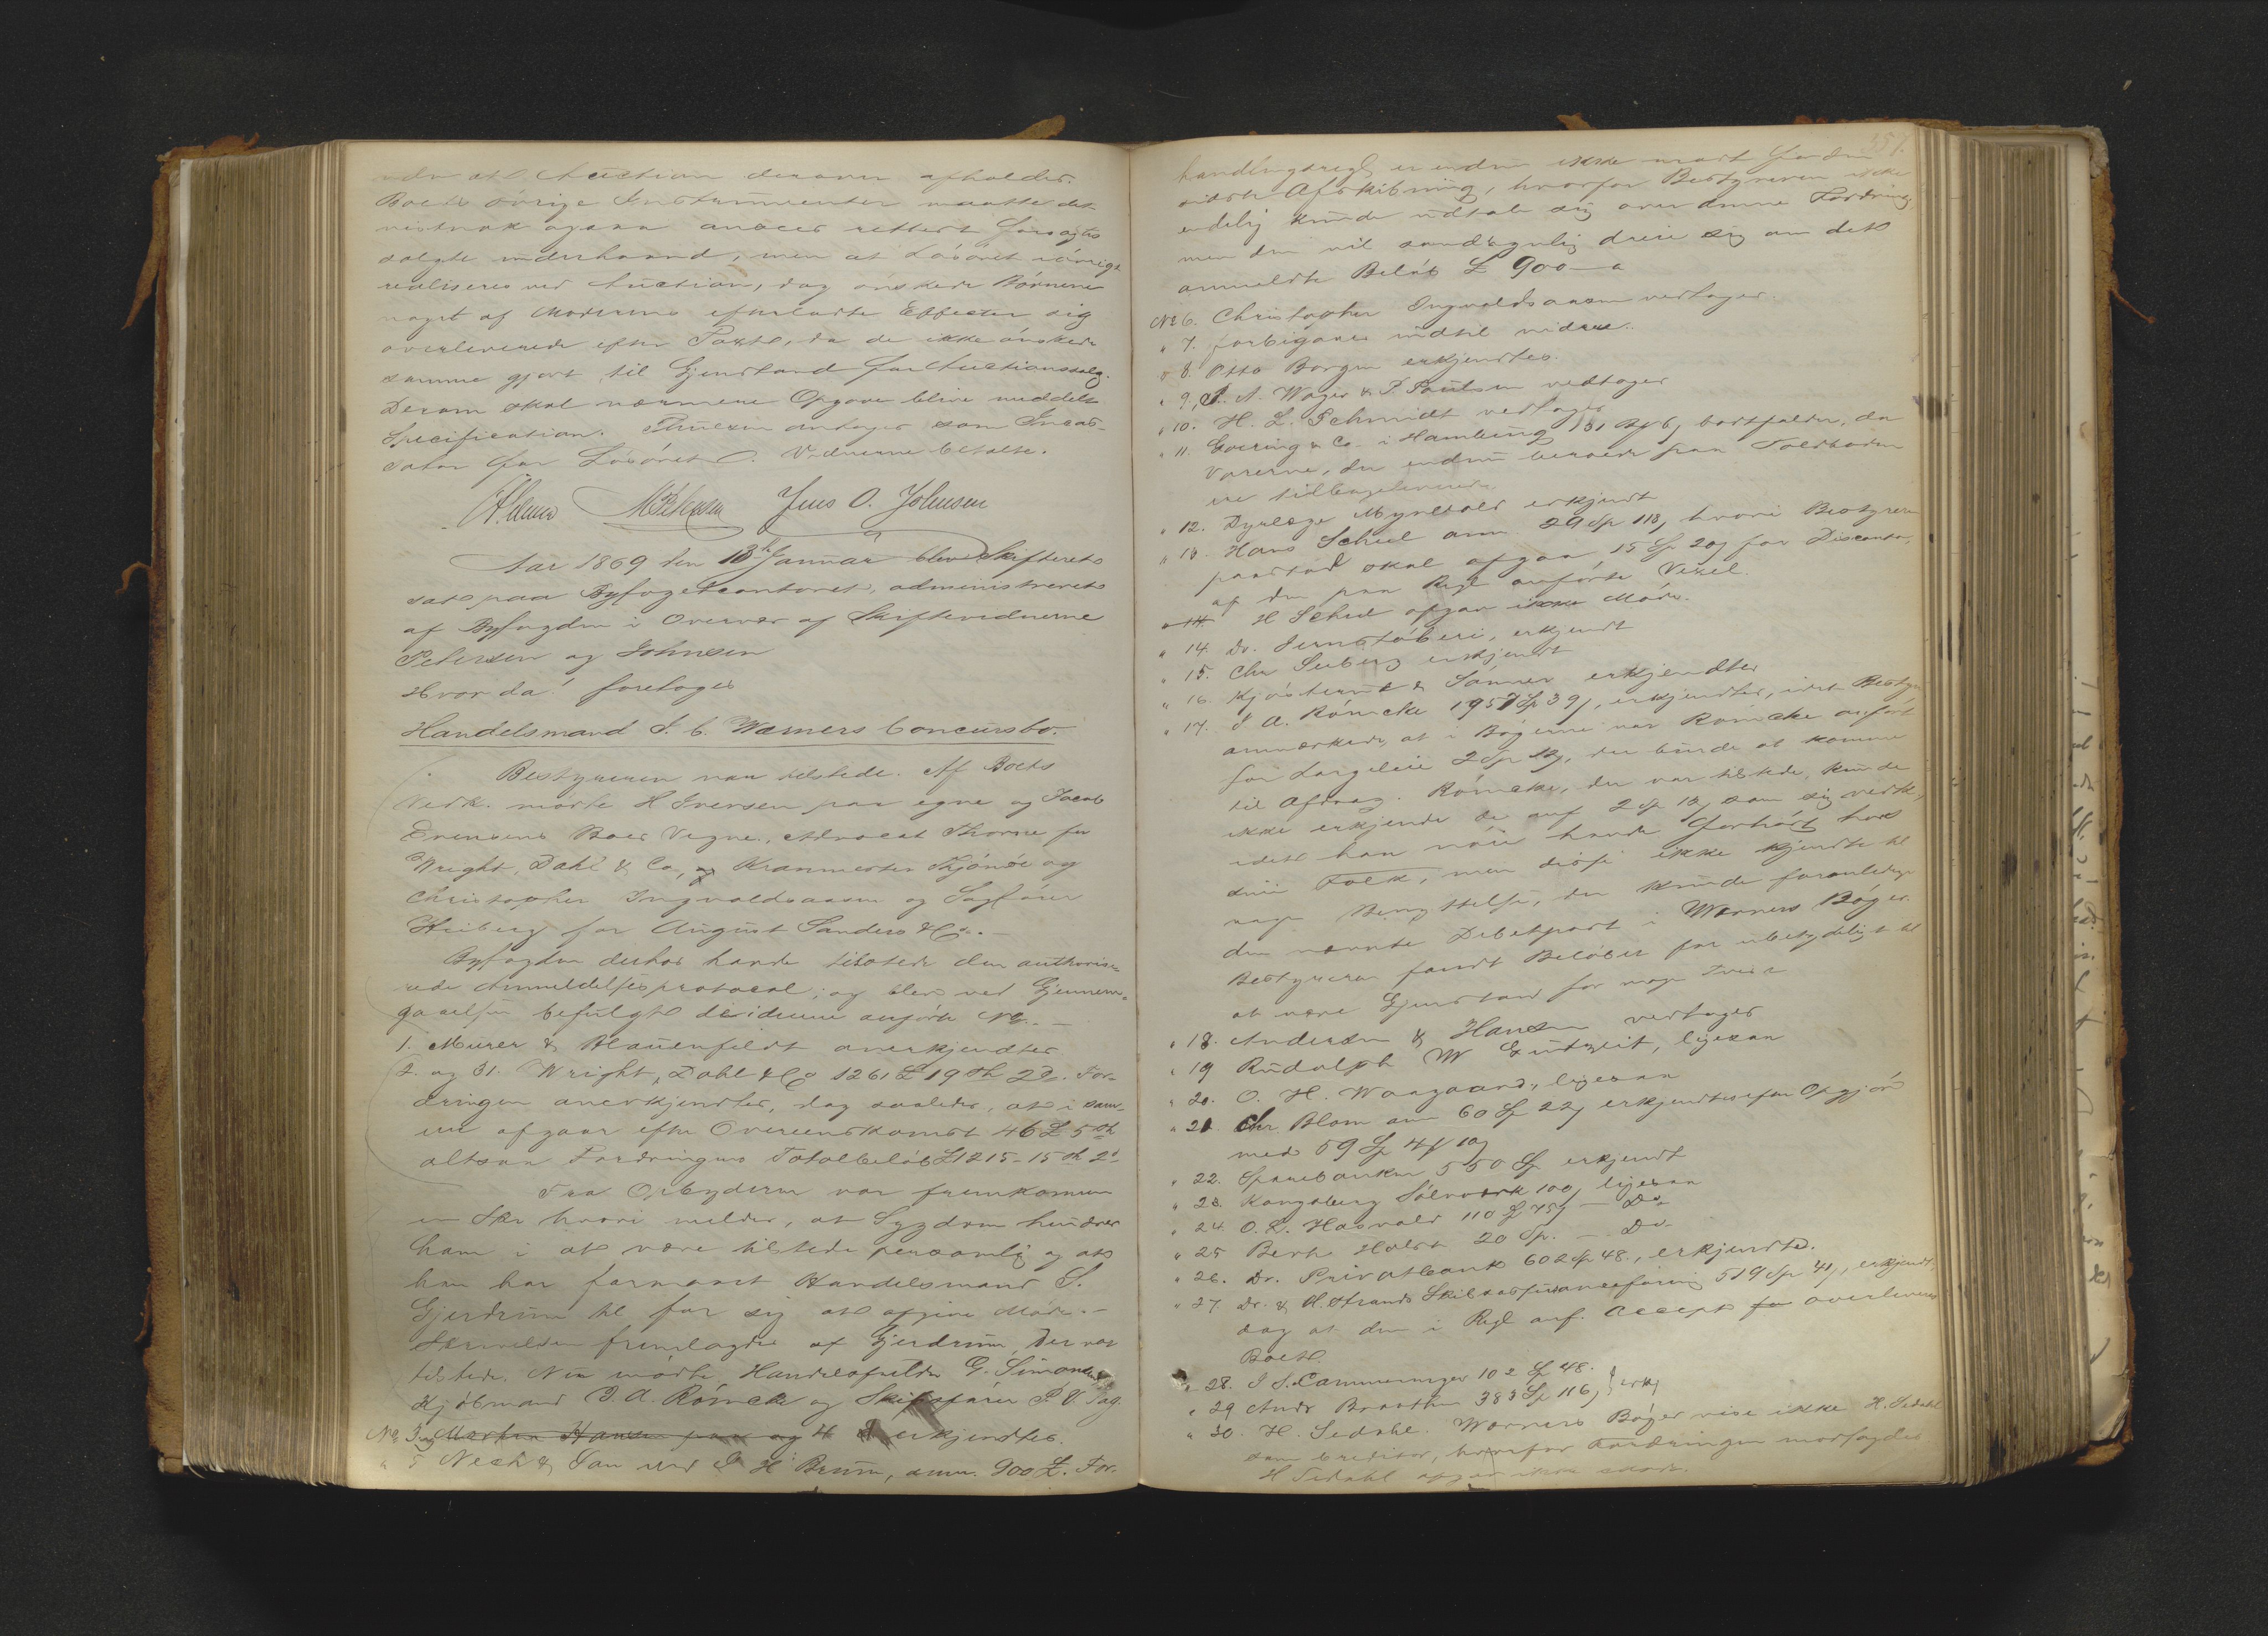 at Auction derover afholdes.
Boets övrige Instrumenter maatte det
ogsaa ansees rettest forsögtes
solgte underhaand, men at Lösöret iövrigt
realiseres ved Auction, dog önskede Börnene
noget af Moderens efterladte Effecter sig
overleverede efter Taxt, da de ikke önskede
samme gjort til Gjenstand for Auctionssalg.
Derom skal nærmere Opgave blive meddelt
Specification. antages som Incas-
sator for Lösöret. Vidnerne betalte.
Jens O. Johnsen
Aar 1869 den 13de Januar blev Skifteret
sat paa Byfogedcontoret, administreret
af Byfogden i Overvær af Skiftevidnerne
Petersen og Johnsen
Hvor da! foretoges
Handelsmand J. C. Wærners Concursbo.
Bestyreren var tilstede. Af Boets
Vedk. mödte H Iversen paa egne og Jacob
Evensens Boes Vegne, Advocat Thorne for
Wright, Dahl & Co, og Kranmester Kjönöe og
Christopher Ingvaldsaasen og Sagförer
Heiberg for August Sanders & Co. -
Byfogden derhos havde tilstede den authorise-
rede Anmeldelsesprotocol; og blev ved Gjennem-
gaaelsen befulgt de idenne anförte No. -
1. Meurer & Blauenfeldt anerkjendtes
2. og 31. Wright, Dahl & Co 1261 £ 19 sh 2 D. For-
dringen anerkjendtes, dog saaledes, at i sam-
me afgaar efter Overenskomst 46 £ 5 sh
altsaa Fordringens Totalbelöb £ 1215-15 sh 2 d
Fra Opbyderen var fremkommen
en Skr hvori meldes, at Sygdom hindrer
ham i at være tilstede personlig og at
han har formaaet Handelsmand S.
Gjerdrum til for sig at afgive Möde. -
Skrivelsen fremlagdes af Gjerdrum, Der var
tilstede. Nu mödte Handelsfuldm G. Simonsen
Kjöbmand J. A. Römcke og Skibsförer P. V.
No 3 og Morten Hansen paa og 4 erkjendtes.
" 5 Nech & Sön ved J H Bruun, anm. 900 £. For-
351.
handlingsregl er endnu ikke
sidste Afskibning, hvorfor Bestyreren ikke
endelig kunde udtale sig over denne Fordring,
men den vil sandsynlig dreie sig om det
anmeldte Belöb £ 900 -
No 6. Christopher Ingvaldsaasen vedtages.
" 7. forbigaaes indtil videre.
" 8. Otto Borgen erkjendtes.
" 9. A. Wager & P Paulsen vedtages
" 10. H. L. Schmidt vedtages
" 11. & Co i Hamburg bortfalder, da
Varerne, der endnu beroede paa Toldboden
ere tilbageleverede.
" 12. Dyrlæge Myrvold erkjendt
" 13. Hans Scheel anm 29 Sp 118, hvori Bestyreren
paastod skal afgaa 15 Sp 20 for Disconto,
af den paa Regl anförte Vexel.
" 14. H Scheel afgav ikke Möde.
" 14. Dr. Jernstöberi, erkjendt
" 15. Chr Seeberg erkjendt
" 16. Kjösterud & Sönner erkjendtes
" 17. J A. Römcke 1957 Sp 39, erkjendtes, idet Bestyr
anmærkede, at i Bögerne var Römcke anfört
for Lageleie 2 Sp 12, der burde at komme
til Afdrag. Römcke, der var tilstede, kunde
ikke erkjende de anf 2 Sp 12, som sig vedk,
idet han nöie havde forhört hos
sine Folk, men disse ikke kjendte til
nogen Benyttelse, der kunde foranledige
den nævnte Debetpost i Wærners Böger.
Bestyreren fandt Belöbet for ubetydeligt til
at være Gjenstand for nogen Tvist
" 18. Andersen & Hansen vedtages
" 19 Rudolph W Gutzeit, ligesaa
" 20. O. H. Waagaard, ligesaa
" 21 Chr. Blom anm 60 Sp 22, erkjendtes efter Opgjör
med 59 Sp 4 10
" 22. Sparebanken 550 Sp erkjendt
" 23. Kongsberg Sölvværk 100, ligesaa
" 24 O. L. Hasvold 110 Sp 75 - Do
" 25 Bernh Holst 20 Sp. - Do
" 26. Dr. Privatbank 602 Sp 48., erkjendtes.
" 27. Dr. & H. Strands Skibsassuranceforening 519 Sp 41, erkjendt,
dog at den i Regl anf. Accept fra overleveres
Boet.
" 28. J S. Cammermeyer 102 Sp 48.
" 29 Andr Braathen 383 Sp 116, } erkj
" 30. H. Sedahl. Wærners Böger vise ikke H. Sedahl
som Creditor, hvorfor Fordringen modsagdes
H Sedahl afgav ikke Möde.